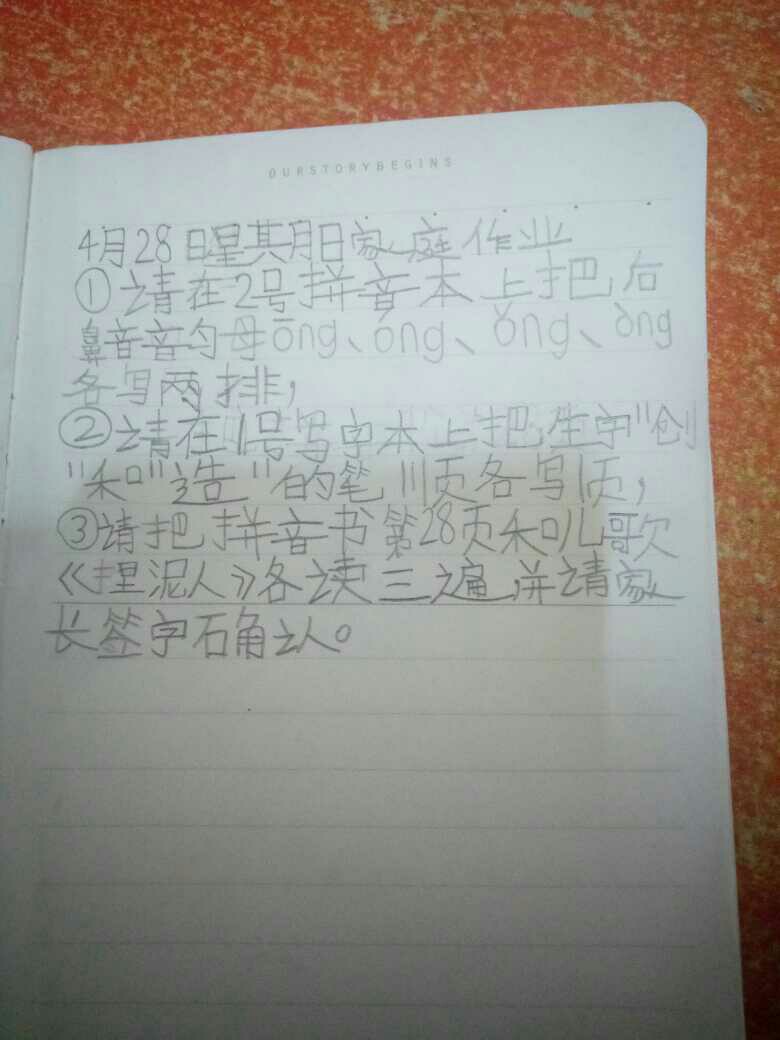 OURSTORYBEGINS
4月28日星期日家庭作业
①请在2号拼音本上把后
鼻音音匀母ōng、óng、ǒng、òng
各写两排，
②请在1号写字本上把生字"创
"和"造"的笔川页各写1页，
③请把拼音书第28页和儿歌
《捏泥人》各读三遍并请家
长签字石角认。